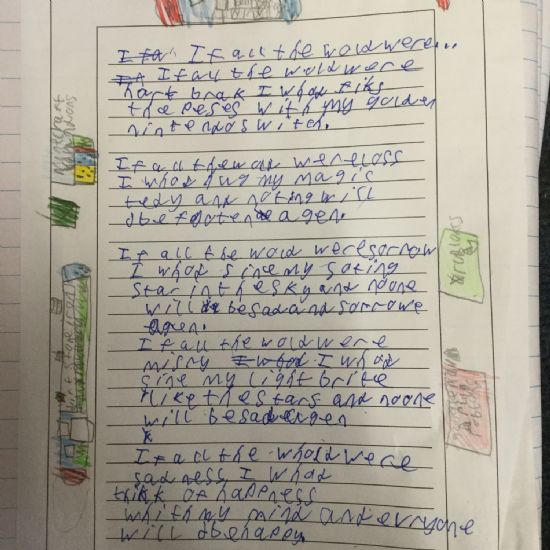 If all the wold were...
If all the wold were
hart brak I whod fiks
the peses with my golden
nintendo switch.
If all the wold were loss
I whod hug my magic
tedy and noting will
be foten agen.
If all the wold were sorrow
I whod sine my soting
star in the sky and noone
will be sad and sorrowe
agen.
If all the wold were
misry I whod
sine my light brite
like the stars and noone
will be sad engen
If all the whold were
sadness I whod
thikk of happness
whith my mind and everyone
will be happy.